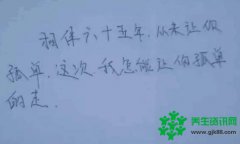 相伴六十五年，从未让你
孤单，这次我怎能让你孤单
的走．
养生资讯网
www.gjk88.com